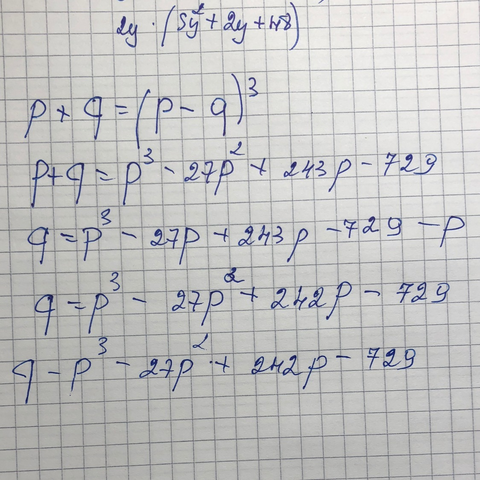 2y · (5y² + 2y + 48)
p + q = (p - q)³
p + q = p³ - 27p² + 243p - 729
q = p³ - 27p + 243p - 729 - p
q = p³ - 27p² + 242p - 729
q - p³ - 27p² + 242p - 729